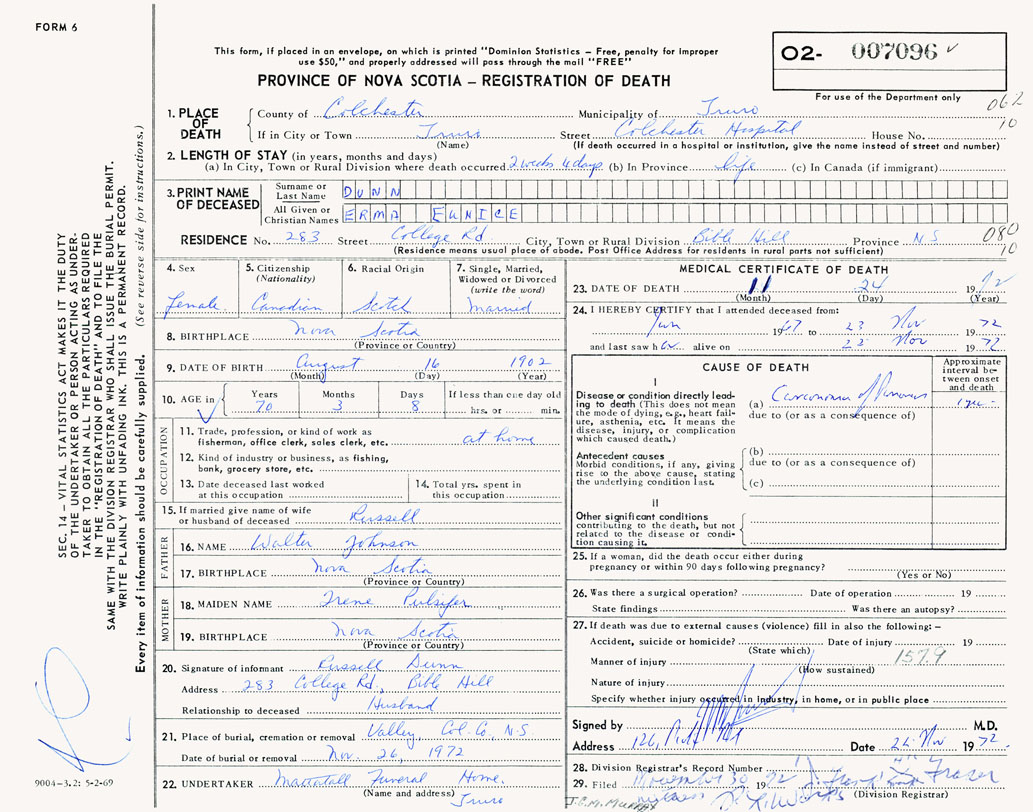 FORM 6
This form, if placed in an envelope, on which is printed "Dominion Statistics – Free, penalty for improper
use $50," and properly addressed will pass through the mail "FREE"
PROVINCE OF NOVA SCOTIA – REGISTRATION OF DEATH
02- 007096
For use of the Department only
062
10
1. PLACE OF DEATH
County of Colchester Municipality of Truro
If in City or Town Truro Street Colchester Hospital House No.
(Name) (If death occurred in a hospital or institution, give the name instead of street and number)
2. LENGTH OF STAY (in years, months and days)
(a) In City, Town or Rural Division where death occurred 2 weeks 4 days (b) In Province life (c) In Canada (if immigrant)
3. PRINT NAME OF DECEASED
Surname or Last Name DUNN
All Given or Christian Names ERMA EUNICE
RESIDENCE No. 283 Street College Rd City, Town or Rural Division Bible Hill Province N.S
(Residence means usual place of abode. Post Office Address for residents in rural parts not sufficient)
080
10
4. Sex
Female
5. Citizenship
(Nationality)
Canadian
6. Racial Origin
Scotch
7. Single, Married,
Widowed or Divorced
(write the word)
Married
8. BIRTHPLACE Nova Scotia
(Province or Country)
9. DATE OF BIRTH August 16 1902
(Month) (Day) (Year)
10. AGE in
Years Months Days If less than one day old
70 3 8 hrs. or min.
OCCUPATION
11. Trade, profession, or kind of work as
fisherman, office clerk, sales clerk, etc. at home
12. Kind of industry or business, as fishing,
bank, grocery store, etc.
13. Date deceased last worked
at this occupation
14. Total yrs. spent in
this occupation
15. If married give name of wife
or husband of deceased Russell
FATHER
16. NAME Walter Johnson
17. BIRTHPLACE Nova Scotia
(Province or Country)
MOTHER
18. MAIDEN NAME Irene Pulsifer
19. BIRTHPLACE Nova Scotia
(Province or Country)
20. Signature of informant Russell Dunn
Address 283 College Rd, Bible Hill
Relationship to deceased Husband
21. Place of burial, cremation or removal Valley, Col. Co, N.S.
Date of burial or removal Nov. 26, 1972
22. UNDERTAKER Mattatall Funeral Home,
(Name and address) Truro
MEDICAL CERTIFICATE OF DEATH
23. DATE OF DEATH 11 24 1972
(Month) (Day) (Year)
24. I HEREBY CERTIFY that I attended deceased from:
Jan 1967 to 23 Nov 1972
and last saw her alive on 22 Nov 1972
CAUSE OF DEATH
Approximate
interval be-
tween onset
and death
I
Disease or condition directly lead-
ing to death (This does not mean
the mode of dying, e.g., heart fail-
ure, asthenia, etc. It means the
disease, injury, or complication
which caused death.)
(a) Carcinoma of
due to (or as a consequence of)
Antecedent causes
Morbid conditions, if any, giving
rise to the above cause, stating
the underlying condition last.
(b)
due to (or as a consequence of)
(c)
II
Other significant conditions
contributing to the death, but not
related to the disease or condi-
tion causing it.
25. If a woman, did the death occur either during
pregnancy or within 90 days following pregnancy?
(Yes or No)
26. Was there a surgical operation? Date of operation 19
State findings Was there an autopsy?
27. If death was due to external causes (violence) fill in also the following: –
Accident, suicide or homicide? Date of injury 19
(State which)
1579
Manner of injury
(How sustained)
Nature of injury
Specify whether injury occurred in industry, in home, or in public place
Signed by M.D.
Address 126, Date 24 Nov 1972
28. Division Registrar's Record Number
29. Filed November 30 72 Fraser
(Division Registrar)
SEC. 14 – VITAL STATISTICS ACT MAKES IT THE DUTY
OF THE UNDERTAKER OR PERSON ACTING AS UNDER-
TAKER TO OBTAIN ALL THE PARTICULARS REQUIRED
IN THE "REGISTRATION OF DEATH" AND TO FILE THE
SAME WITH THE DIVISION REGISTRAR WHO SHALL ISSUE THE BURIAL PERMIT.
WRITE PLAINLY WITH UNFADING INK. THIS IS A PERMANENT RECORD.
Every item of information should be carefully supplied. (See reverse side for instructions.)
9004–3.2: 5-2-69